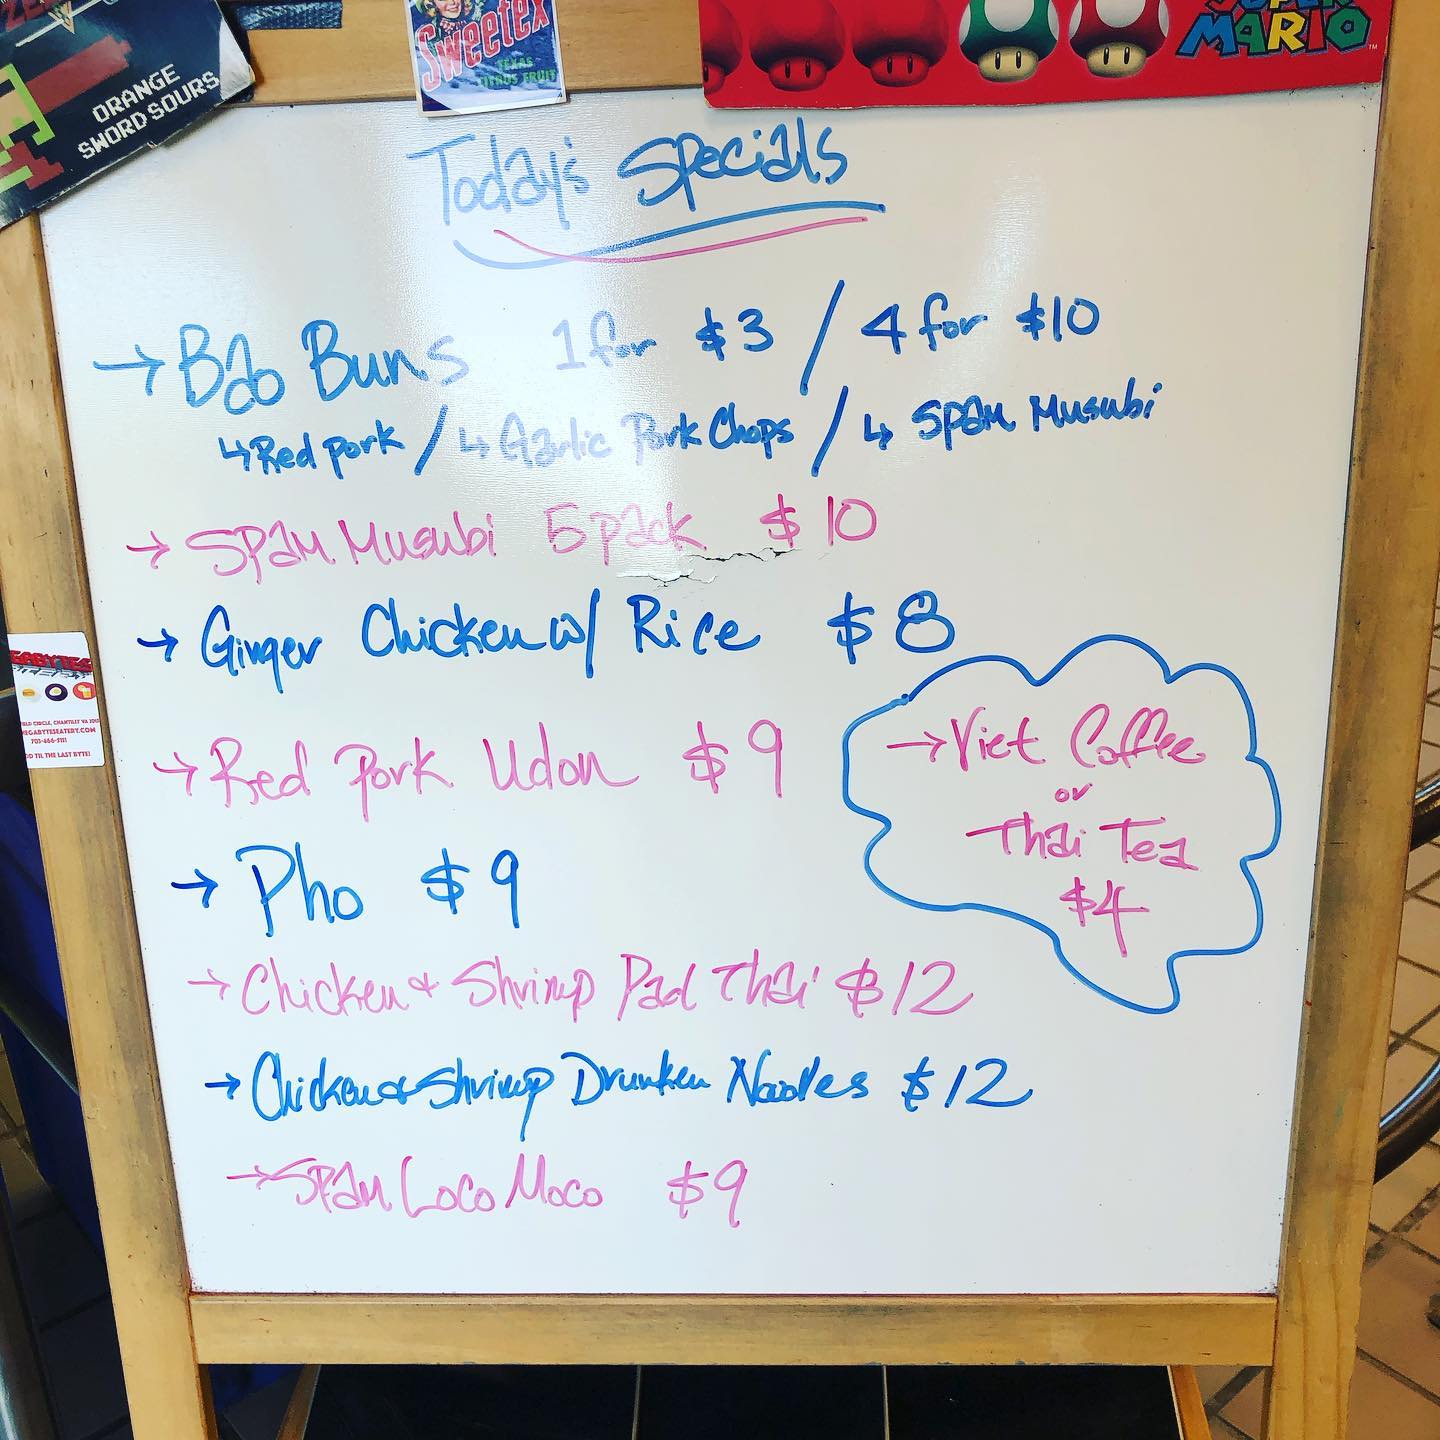 ORANGE
SWORD SOURS
Sweetex
TEXAS
CITRUS FRUIT
SUPER
MARIO
TM
Today's Specials
→ Bao Buns 1 for $3 / 4 for $10
↳ Red pork / ↳ Garlic Pork Chops / ↳ Spam Musubi
→ Spam Musubi 5 pack $10
→ Ginger Chicken w/ Rice $8
→ Red pork Udon $9
→ Pho $9
→ Chicken & Shrimp Pad Thai $12
→ Chicken & Shrimp Drunken Noodles $12
→ Spam Loco Moco $9
→ Viet Coffee
or
Thai Tea
$4
GABYTES
CIRCLE, CHANTILLY VA
EGABYTESEATERY.COM
TIL THE LAST BYTE!